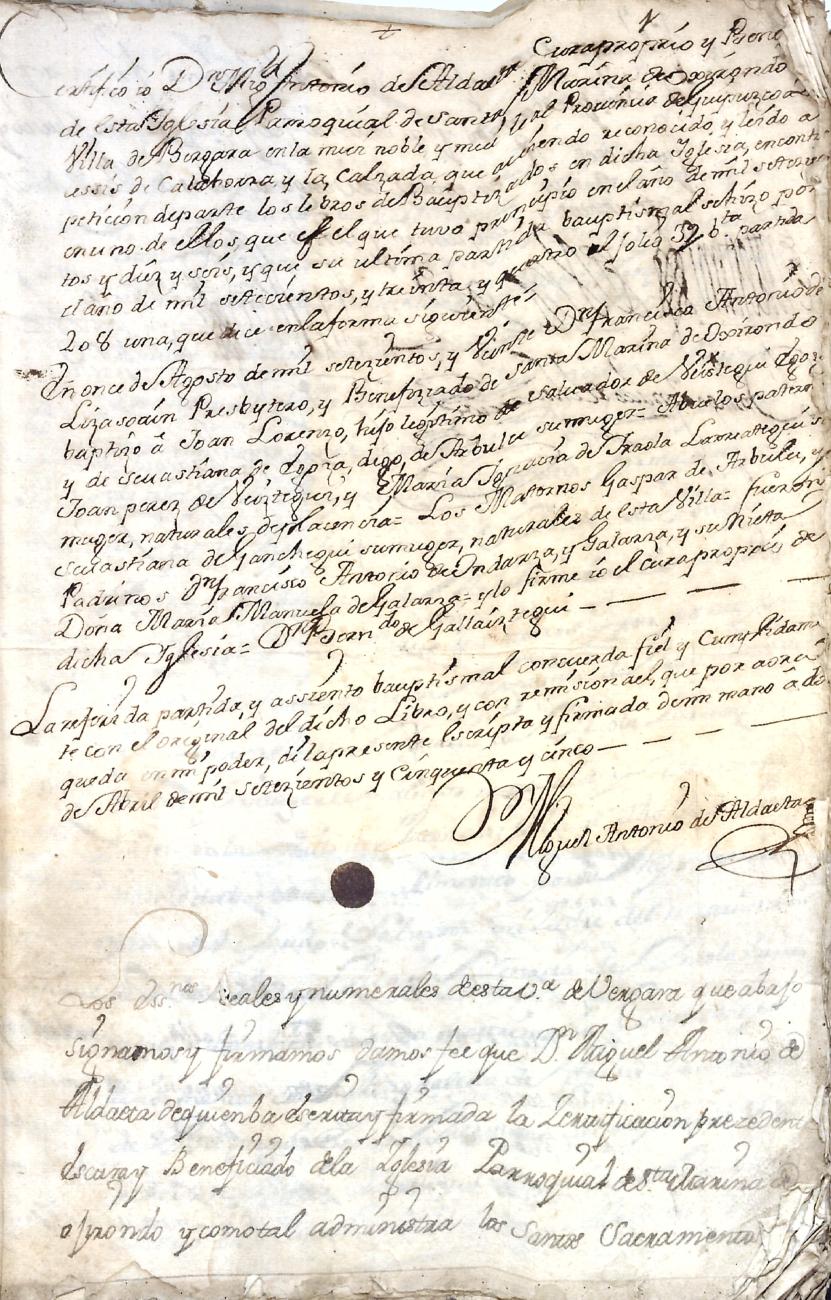 Certifico io Dn Migl Antonio de Aldaeta Cura proprio y Bene
de esta Iglesia Parroquial de Santa Marina de Oxirondo
Villa de Bergara en la mui noble y mui leal Provincia de Guipuzcoa
cessis de Calahorra, y la Calzada, que aviendo reconocido, y leido a
peticion de parte los libros de Bauptizados en dicha Iglesia, encontre
en uno de ellos, que es el que tuvo principio en el año de mil setezien
tos y diez y seis, y que su ultima partida bauptismal se hizo por
el año de mil setecientos, y treinta, y quatro al folio 32 bta partida
208 una, que dice en la forma siguiente
En once de Agosto de mil setezientos, y Veinte Dn Francisco Antonio de
Lizasoain Presbytero, y Benefiziado de Santa Marina de Oxirondo
baptizo â Joan Lorenzo, hijo legitimo de Salvador de Veistegui
y de Sevastiana de Loyza, digo, de Arbulu su muger= Abuelos patern
Joan perez de Veiztegui, y Maria Ignacia de Traola Larreategui su
muger, naturales de Placencia= Los Maternos Gaspar de Arbulu, y
Sevastiana de Ganchegui su muger, naturales de esta Villa= fueron
Padrinos Dn Francisco Antonio de Ondarza, y Galarza, y su Nieta
Doña Maria Manuela de Galarza= y lo firme io el cura proprio de
dicha Iglesia= Dn Ferndo de Gallaiztegui
La referida partida, y assiento bauptismal concuerda fiel y Cumplidam
te con el original del dicho Libro, y con remision a el, que por aora
queda en mi poder, di la presente Escripta y firmada de mi mano â do
de Abril de mil setezientos y Cinquenta y cinco
Dn Miguel Antonio de Aldaeta
Los Essnos Reales y numerales de esta Va de Vergara que abajo
signamos y firmamos damos fee que Dn Miguel Antonio de
Aldaeta de quien ba escrita y firmada la Zertificacion prezedent
es cura y Beneficiado de la Iglesia Parroquial de Sta Marina de
oxirondo y como tal administra los Santos Sacramento